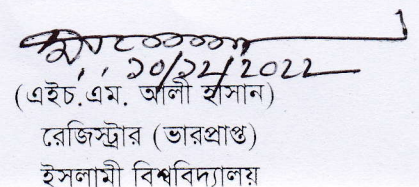 ১০/১২/২০২২
(এইচ.এম. আলী হাসান)
রেজিস্ট্রার (ভারপ্রাপ্ত)
ইসলামী বিশ্ববিদ্যালয়